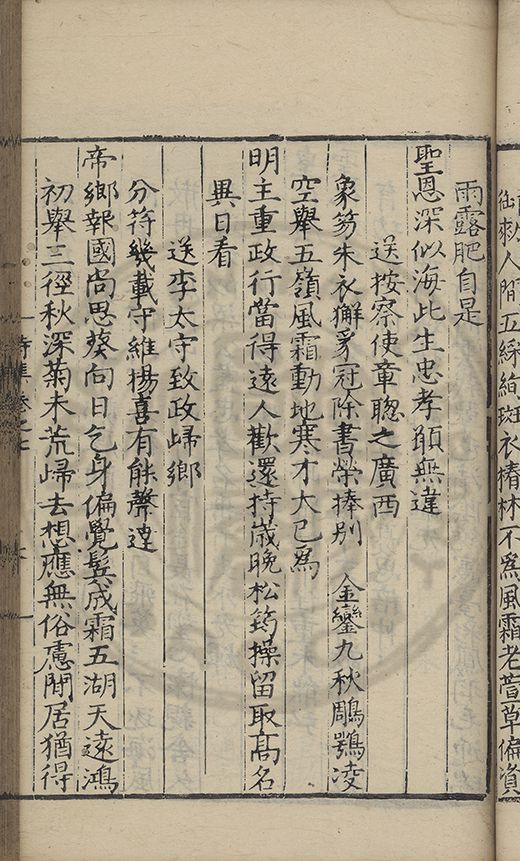 御剩人間五綵絢斑衣椿林不爲風霜老萱草偏負
雨露肥自是
聖恩深似海此生忠孝願無違
送按察使章聰之廣西
象笏朱衣獬豸冠除書榮捧別　金鑾九秋鵰鶚凌
空舉五嶺風霜動地寒才大已爲
明主重政行當得遠人歡還持歲晚松筠操留取高名
異日看
送李太守致政歸鄉
分符幾載守維揚喜有能聲達
帝鄉報國尚思葵向日乞身偏覺鬂成霜五湖天遠鴻
初舉三徑秋深菊未荒歸去想應無俗慮閒居猶得
詩集卷之七